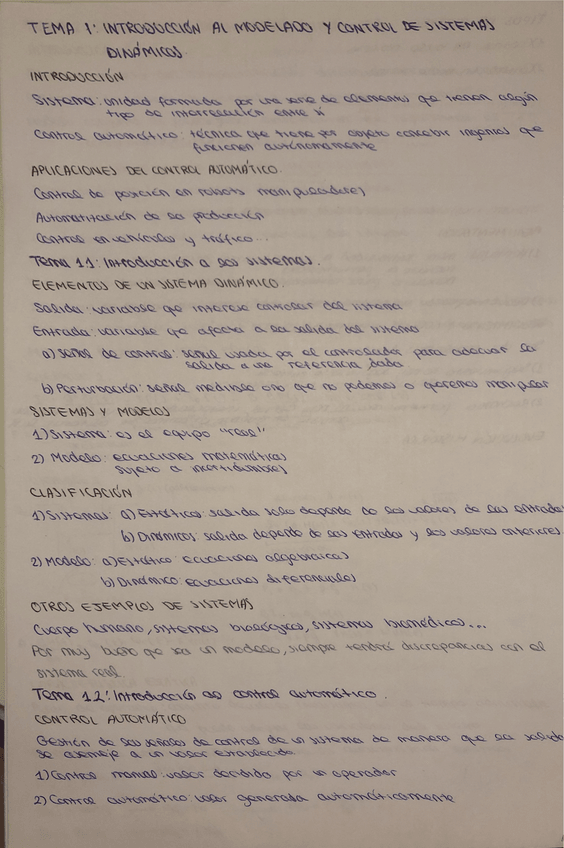 TEMA 1: INTRODUCCIÓN AL MODELADO Y CONTROL DE SISTEMAS
DINÁMICOS
INTRODUCCIÓN
Sistema: unidad formada por una serie de elementos que tienen algún
tipo de interrelación entre sí
Control automático: técnica que tiene por objeto concebir ingenios que
funcionen autónomamente
APLICACIONES DEL CONTROL AUTOMÁTICO.
Control de posición en robots manipuladores
Automatización de la producción
Control en vehículos y tráfico...
Tema 1.1: Introducción a los sistemas.
ELEMENTOS DE UN SISTEMA DINÁMICO.
Salida: variable que interesa controlar del sistema
Entrada: variable que afecta a la salida del sistema
a) Señal de control: señal usada por el controlador para adecuar la
salida a una referencia dada
b) Perturbación: señal medible o no que no podemos o queremos manipular
SISTEMAS Y MODELOS
1) Sistema: es el equipo "real"
2) Modelo: ecuaciones matemáticas
sujeto a incertidumbres
CLASIFICACIÓN
1) Sistemas: a) Estáticos: salida solo depende de los valores de las entradas
b) Dinámicos: salida depende de las entradas y los valores anteriores
2) Modelo: a) Estático: ecuaciones algebraicas
b) Dinámico: ecuaciones diferenciales
OTROS EJEMPLOS DE SISTEMAS
Cuerpo humano, sistemas biológicos, sistemas biomédicos...
Por muy bueno que sea un modelo, siempre tendrá discrepancias con el
sistema real.
Tema 1.2: Introducción al control automático.
CONTROL AUTOMÁTICO
Gestión de las señales de control de un sistema de manera que la salida
se asemeje a un valor establecido.
1) Control manual: valor decidido por un operador
2) Control automático: valor generada automáticamente